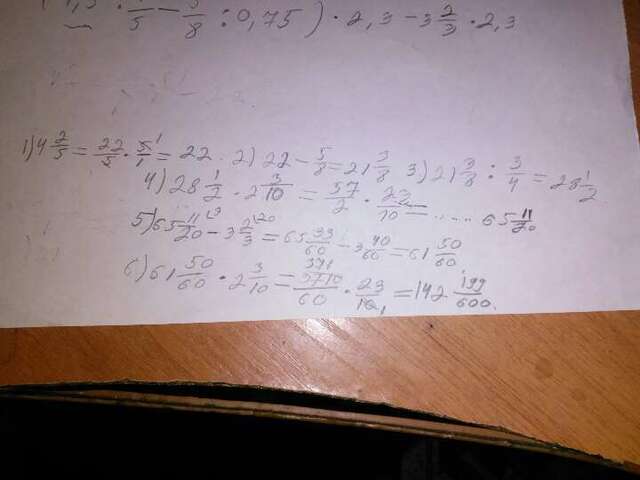 5/8 : 0,75) · 2,3 - 3 2/3 · 2,3
1) 4 2/5 = 22/5 · 5/1 = 22. 2) 22 - 5/8 = 21 3/8 3) 21 3/8 : 3/4 = 28 1/2.
4) 28 1/2 · 2 3/10 = 57/2 · 23/10 = ..... 65 11/20
5) 65 11/20 - 3 2/3 = 65 33/60 - 3 40/60 = 61 50/60
6) 61 50/60 · 2 3/10 = 3710/60 · 23/10 = 142 199/600.